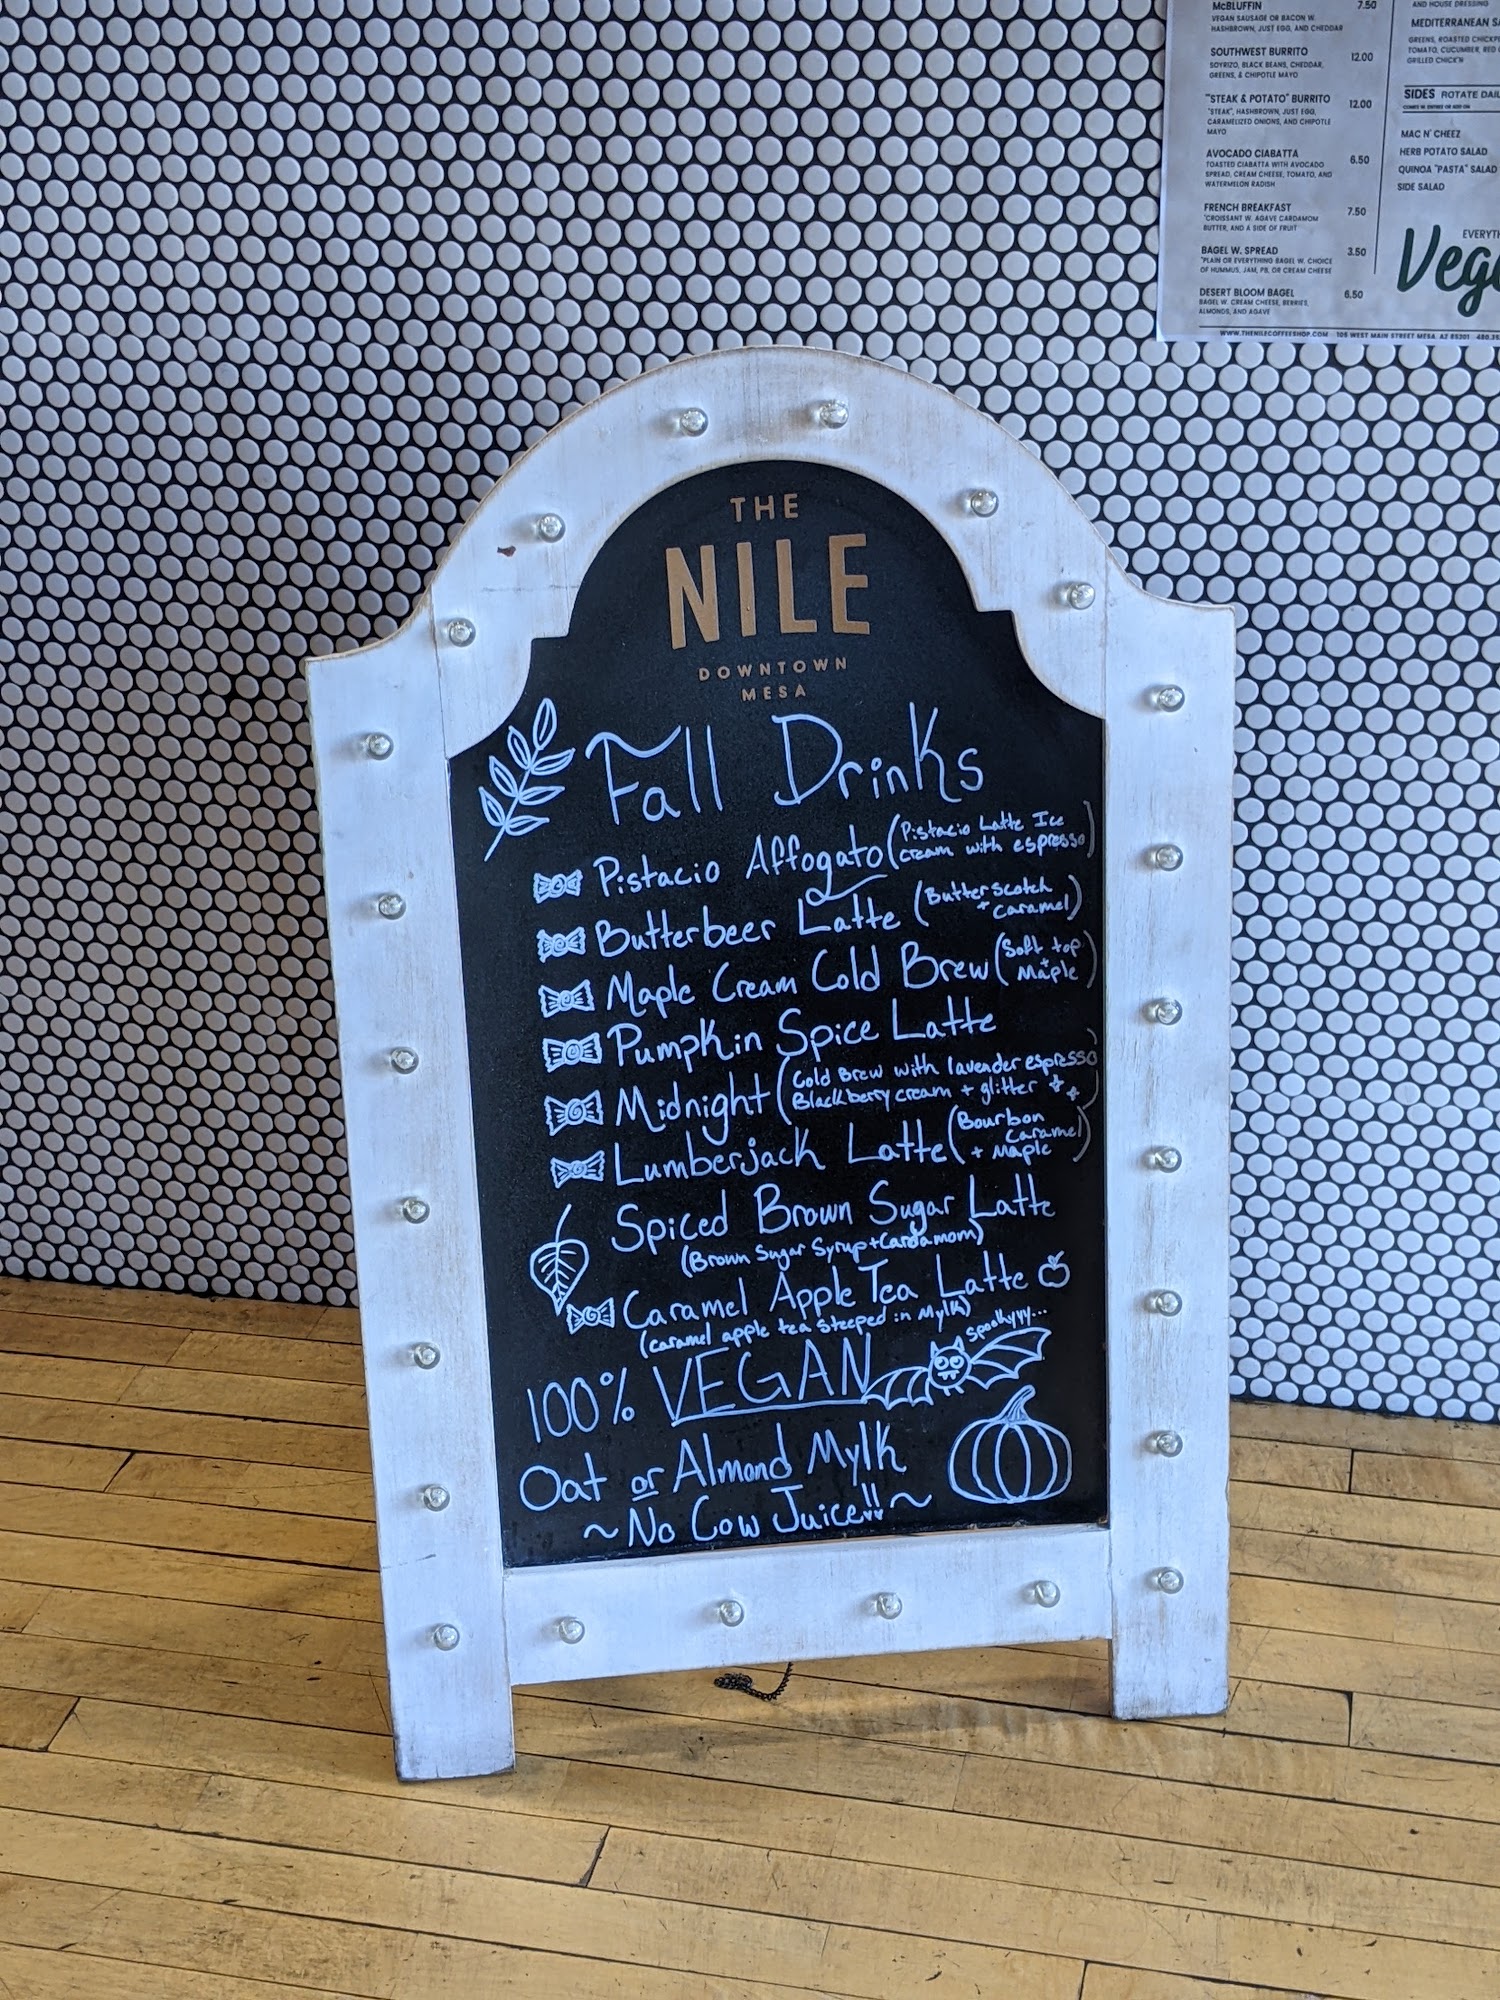 THE
NILE
DOWNTOWN
MESA
Fall Drinks
Pistacio Affogato (Pistacio Latte Ice
cream with espresso)
Butterbeer Latte (Butterscotch
+ caramel)
Maple Cream Cold Brew (Soft top
+ Maple)
Pumpkin Spice Latte
Midnight (Cold Brew with lavender espresso
Blackberry cream + glitter)
Lumberjack Latte (Bourbon
Caramel
+ Maple)
Spiced Brown Sugar Latte
(Brown Sugar Syrup + Cardamom)
Caramel Apple Tea Latte
(caramel apple tea steeped in Mylk)
spookyyy...
100% VEGAN
Oat or Almond Mylk
~No Cow Juice!!~
McBLUFFIN 7.50
VEGAN SAUSAGE OR BACON W.
HASHBROWN, JUST EGG, AND CHEDDAR
SOUTHWEST BURRITO 12.00
SOYRIZO, BLACK BEANS, CHEDDAR,
GREENS, & CHIPOTLE MAYO
"STEAK & POTATO" BURRITO 12.00
"STEAK", HASHBROWN, JUST EGG,
CARAMELIZED ONIONS, AND CHIPOTLE
MAYO
AVOCADO CIABATTA 6.50
TOASTED CIABATTA WITH AVOCADO
SPREAD, CREAM CHEESE, TOMATO, AND
WATERMELON RADISH
FRENCH BREAKFAST 7.50
*CROISSANT W. AGAVE CARDAMOM
BUTTER, AND A SIDE OF FRUIT
BAGEL W. SPREAD 3.50
*PLAIN OR EVERYTHING BAGEL W. CHOICE
OF HUMMUS, JAM, PB, OR CREAM CHEESE
DESERT BLOOM BAGEL 6.50
BAGEL W. CREAM CHEESE, BERRIES,
ALMONDS, AND AGAVE
AND HOUSE DRESSING
MEDITERRANEAN
GREENS, ROASTED
TOMATO, CUCUMBER, RED
GRILLED CHICK'N
SIDES ROTATE
MAC N' CHEEZ
HERB POTATO SALAD
QUINOA "PASTA" SALAD
SIDE SALAD
WWW.THENILECOFFEESHOP.COM 105 WEST MAIN STREET MESA, AZ 85201